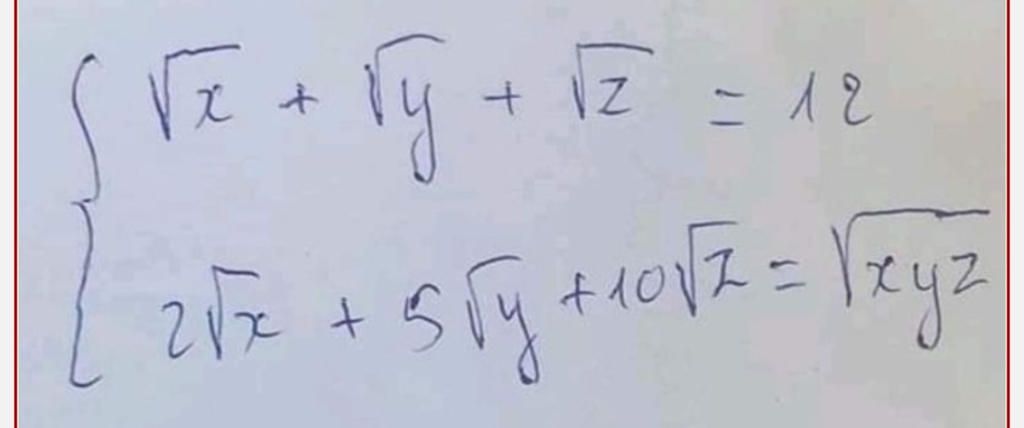 √x + √y + √z = 12
2√x + 5√y + 10√z = √xyz